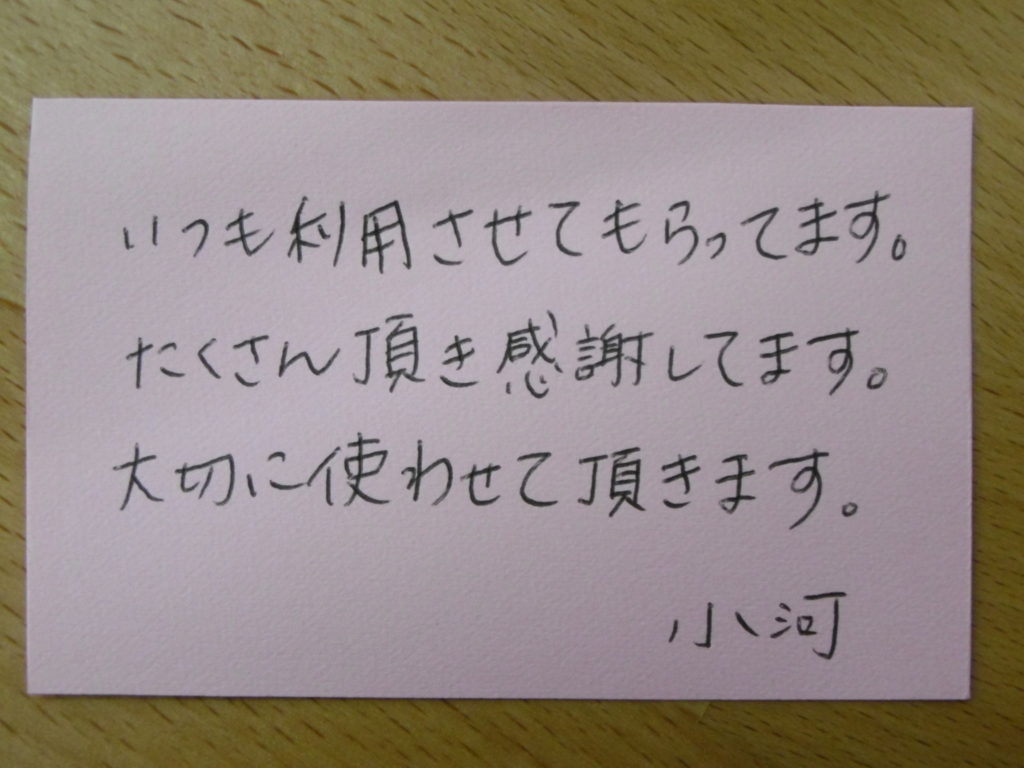 いつも利用させてもらってます。
たくさん頂き感謝してます。
大切に使わせて頂きます。
小河